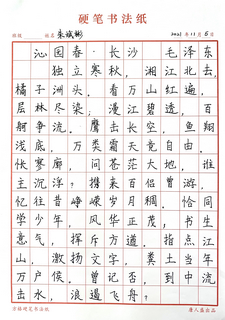 硬笔书法纸
班级 姓名 朱斌彬 2021年11月6日
沁园春·长沙 毛泽东
独立寒秋，湘江北去，
橘子洲头。看万山红遍，
层林尽染；漫江碧透，百
舸争流。鹰击长空，鱼翔
浅底，万类霜天竞自由。
怅寥廓，问苍茫大地，谁
主沉浮？携来百侣曾游，
忆往昔峥嵘岁月稠。恰同
学少年，风华正茂，书生
意气，挥斥方遒。指点江
山，激扬文字，粪土当年
万户侯。曾记否，到中流
击水，浪遏飞舟？